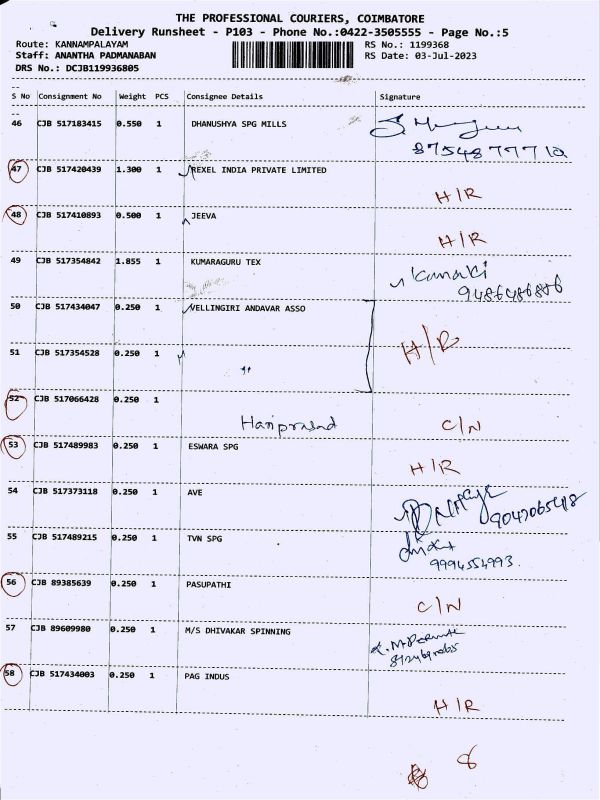 THE PROFESSIONAL COURIERS, COIMBATORE
Delivery Runsheet - P103 - Phone No.:0422-3505555 - Page No.:5
Route: KANNAMPALAYAM RS No.: 1199368
Staff: ANANTHA PADMANABAN RS Date: 03-Jul-2023
DRS No.: DCJB119936805
--
S No Consignment No Weight PCS Consignee Details Signature
--
46 CJB 517183415 0.550 1 DHANUSHYA SPG MILLS
47 CJB 517420439 1.300 1 REXEL INDIA PRIVATE LIMITED
H/R
48 CJB 517410893 0.500 1 JEEVA
H/R
49 CJB 517354842 1.855 1 KUMARAGURU TEX
9486486886
50 CJB 517434047 0.250 1 VELLINGIRI ANDAVAR ASSO
H/R
51 CJB 517354528 0.250 1
"
52 CJB 517066428 0.250 1
Hariprasad C/N
53 CJB 517489983 0.250 1 ESWARA SPG
H/R
54 CJB 517373118 0.250 1 AVE
55 CJB 517489215 0.250 1 TVN SPG
9994554993
56 CJB 89385639 0.250 1 PASUPATHI
C/N
57 CJB 89609980 0.250 1 M/S DHIVAKAR SPINNING
58 CJB 517434003 0.250 1 PAG INDUS
H/R
8